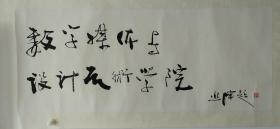 数字媒体与
设计艺术学院